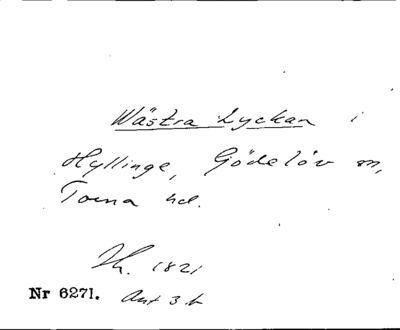 Wästra Lyckan i
Hyllinge, Gödelöv sn,
Torna hd.
Th. 1821
Nr 6271. Ant 3 b